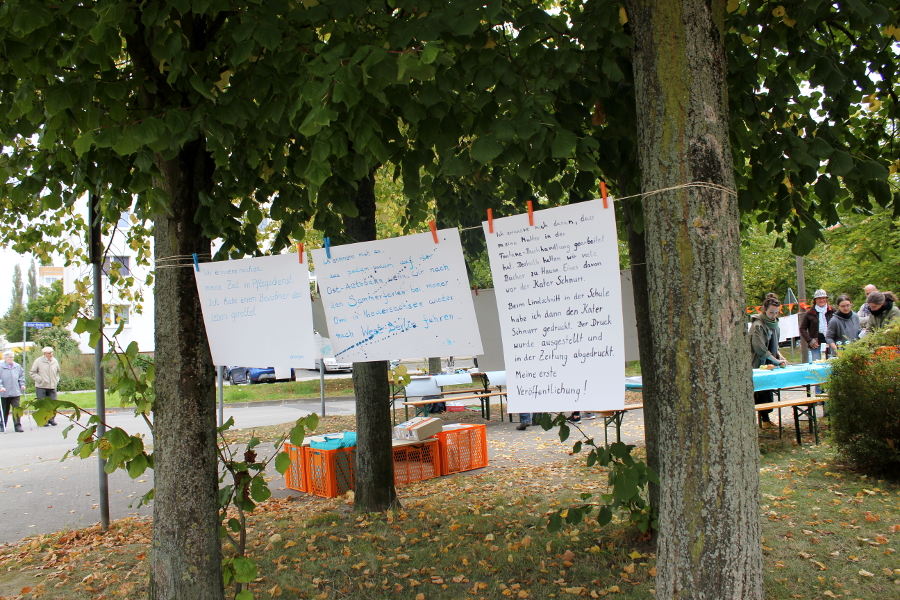 Ich erinnere mich an
meine Zeit im Pflegedienst.
Ich habe einem Bewohner das
Lesen gelernt.
Ich erinnere mich an
Ost-Autobahn, wenn wir nach
den Sommerferien bei meiner
Omi in Hoyerswerda wieder
nach West-Berlin fuhren...
Ich erinnere mich daran, dass
meine Mutter in der
Fontane-Buchhandlung gearbeitet
hat. Deshalb hatten wir viele
Bücher zu Hause. Eines davon
war der Kater Schnurr.
Beim Linolschnitt in der Schule
habe ich dann den Kater
Schnurr gedruckt. Der Druck
wurde ausgestellt und
in der Zeitung abgedruckt.
Meine erste
Veröffentlichung!